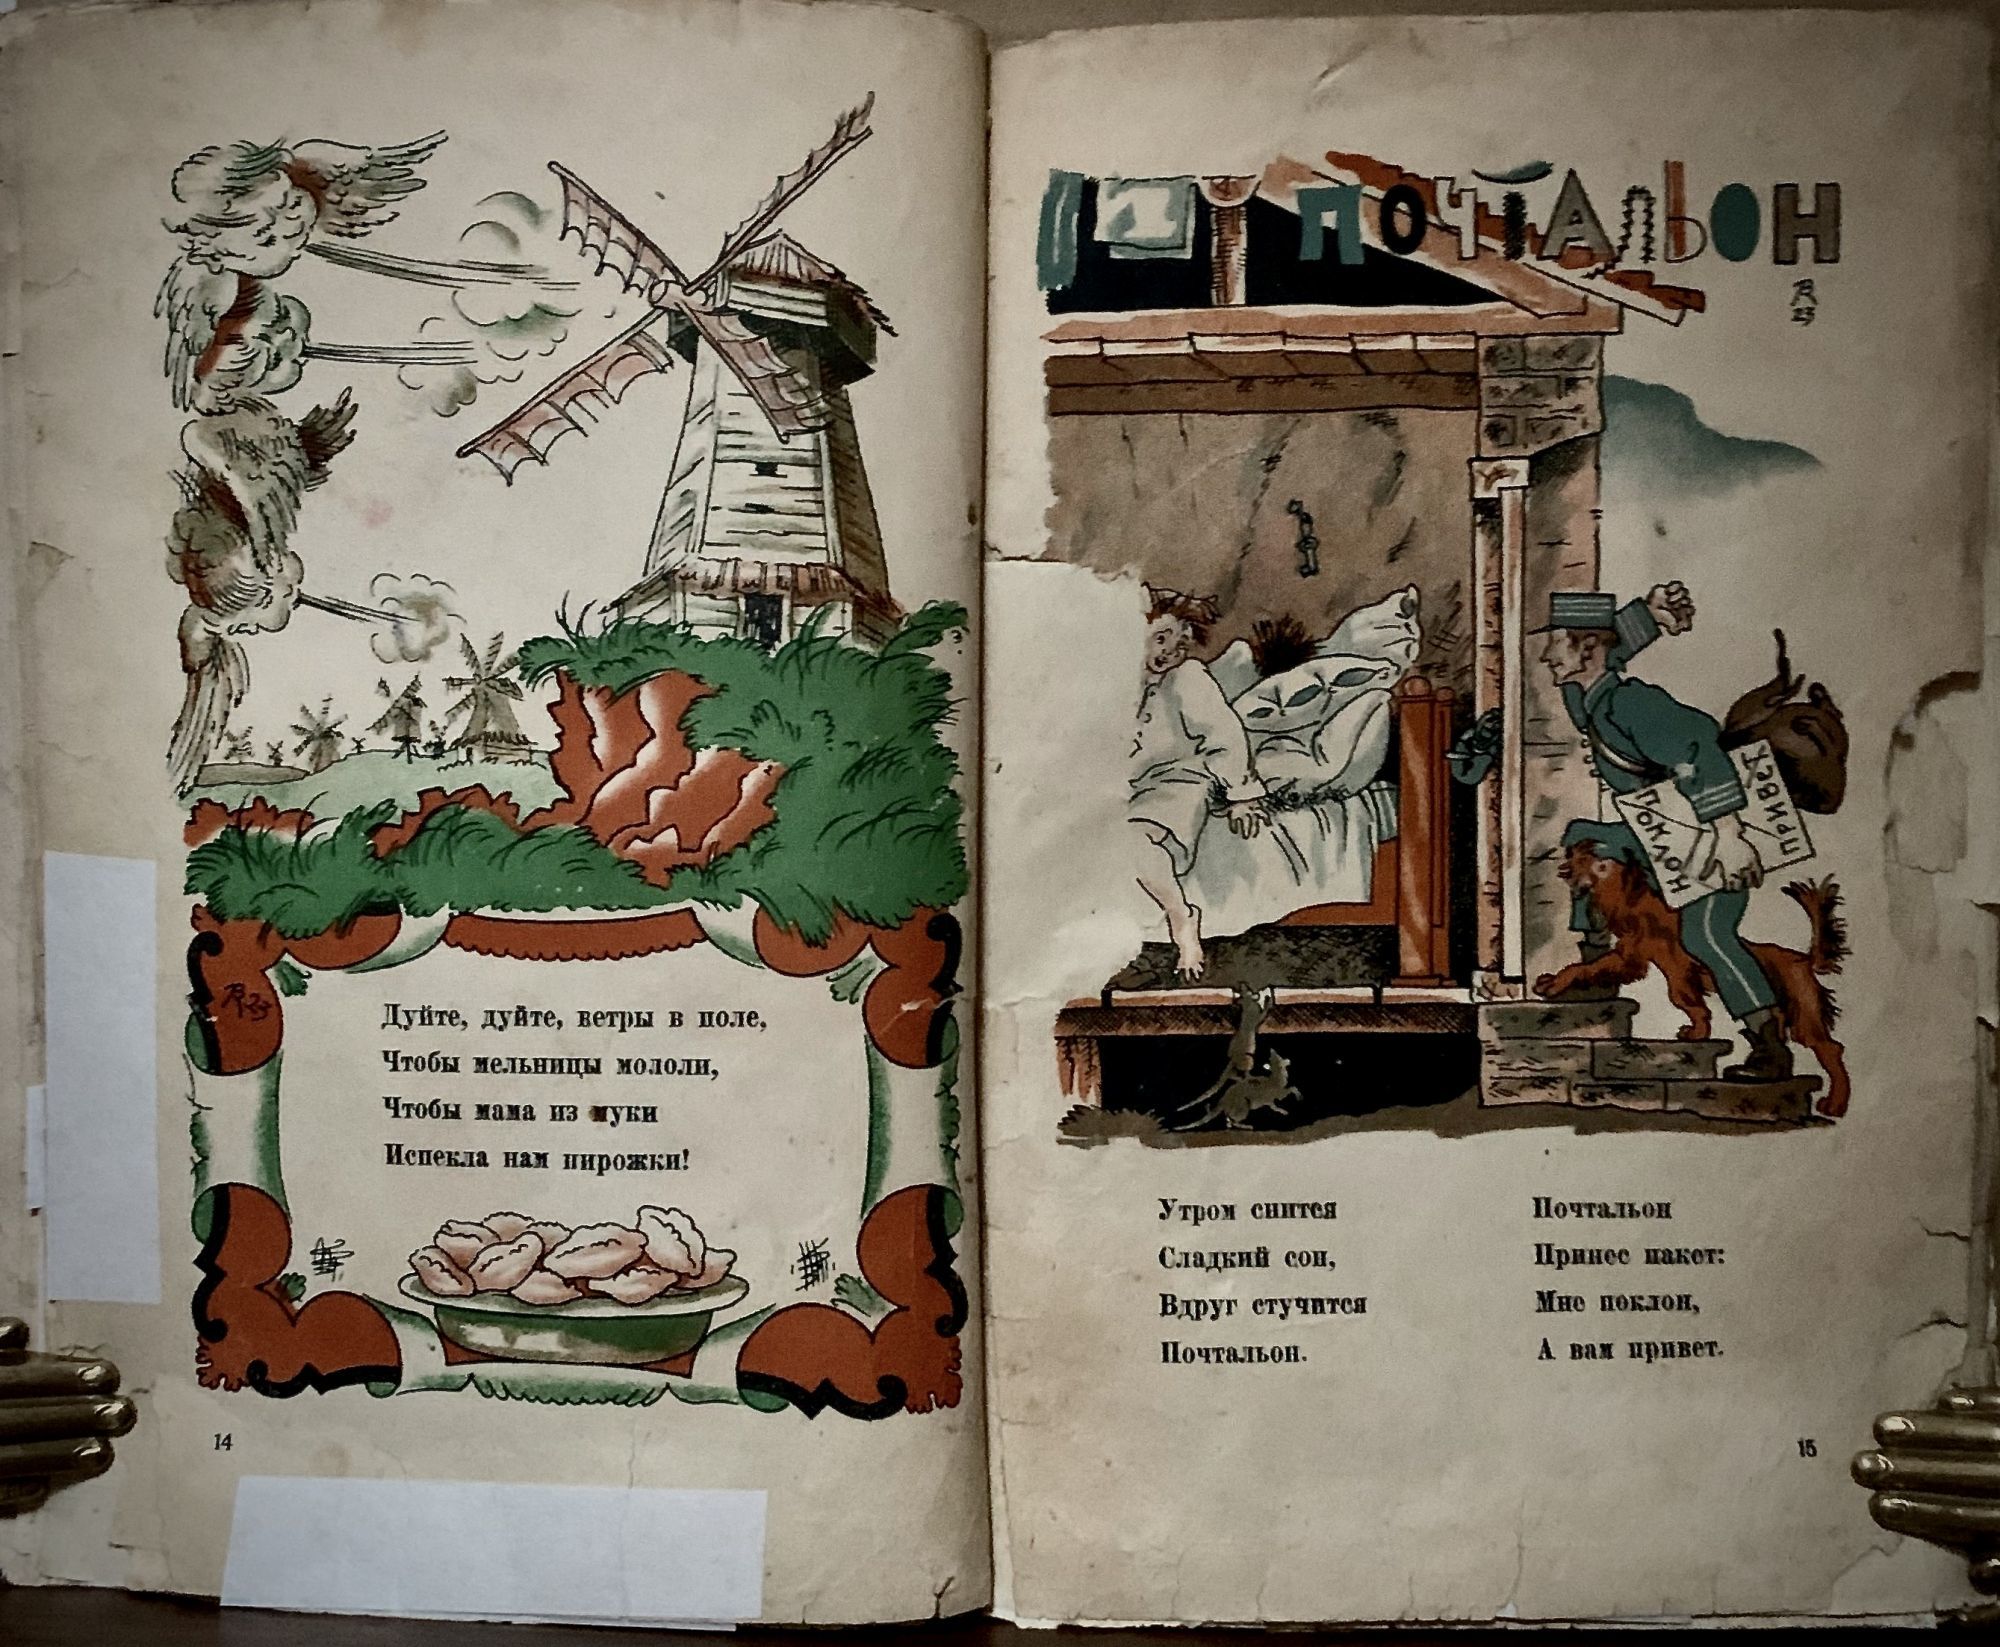 Дуйте, дуйте, ветры в поле,
Чтобы мельницы мололи,
Чтобы мама из муки
Испекла нам пирожки!
14
ПОЧТАЛЬОН
23
ПОКЛОН
ПРИВЕТ
Утром снится
Сладкий сон,
Вдруг стучится
Почтальон.
Почтальон
Принес пакет:
Мне поклон,
А вам привет.
15